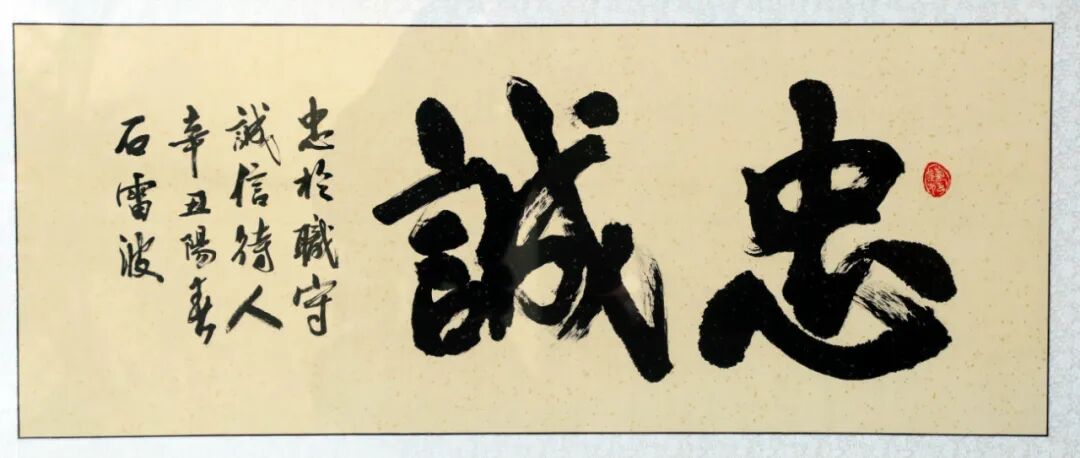 忠誠
忠於職守
誠信待人
辛丑陽春
石雷波